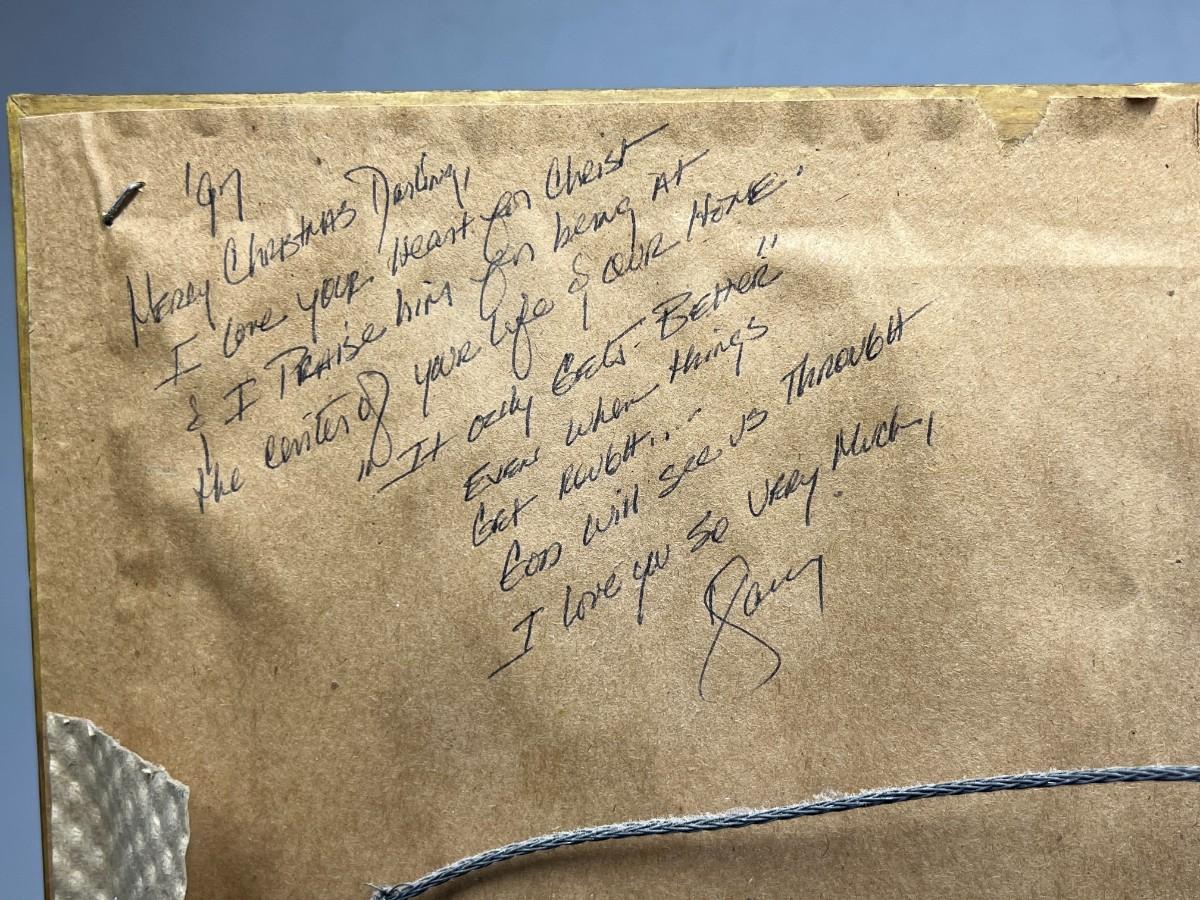 '97
Merry Christmas Darling,
I love your heart for Christ
& I Praise him for being at
the center of your life & our Home.
"It only Gets Better"
Even when things
Get rough....
God will see us Through
I love you so very Much,